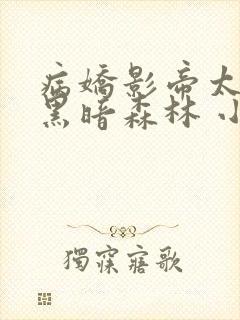 病嬌影帝太
黑暗森林 小
獨寐寤歌